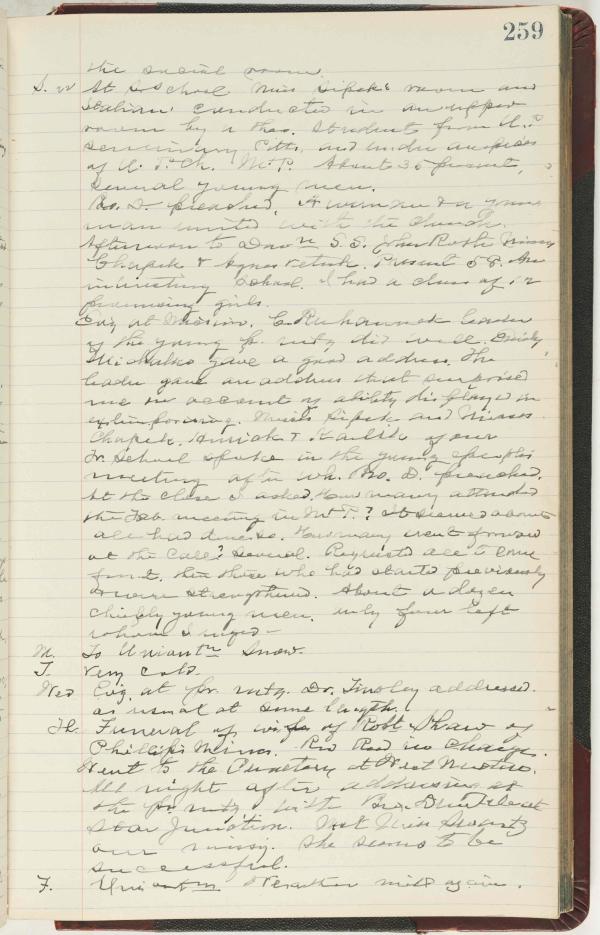 259
the social room.
S. 22 At S. School Miss Sipek's room and
conducted in an upper
room by a theo. student from U.P.
seminary Pitts. and under auspices
of U. P. Ch. Mt. P. About 35 present,
several young men.
Bro. D. preached. A woman & a young
man united with the Church.
Afternoon to S.S. John Roth, Misses
Chapek & Agnes Present 58. An
interesting school. I had a class of 12
promising girls.
Evg at Mission. C. leader
of the young p. mtg did well.
gave a good address. The
leader gave an address that surprised
me on account of ability displayed in
Misses Sipek and Misses
Chapek, & of our
Tr. School spoke in the young peoples
meeting after wh. Bro. D. preached.
At the close I asked, How many attended
the Feb. meeting in Mt P.? It seemed about
all had done so. How many went forward
at the call? Several. Requested all to come
front, then those who had started previously
or were strengthened. About a dozen
chiefly young men, only four left
whom I urged—
M. To Uniontn Snow.
T. Very cold.
Wed Evg. at pr. mtg. Dr. Tinsley addressed
as usual at some length.
Th. Funeral of wife of Robt Shaw of
Phillips Mines. in charge.
Went to the Cemetery at West
All night after addressing at
the pr mtg with Bro. at
Star Junction. Met Miss Swartz
our missy. She seems to be
successful.
F. Uniontn Weather mild again.